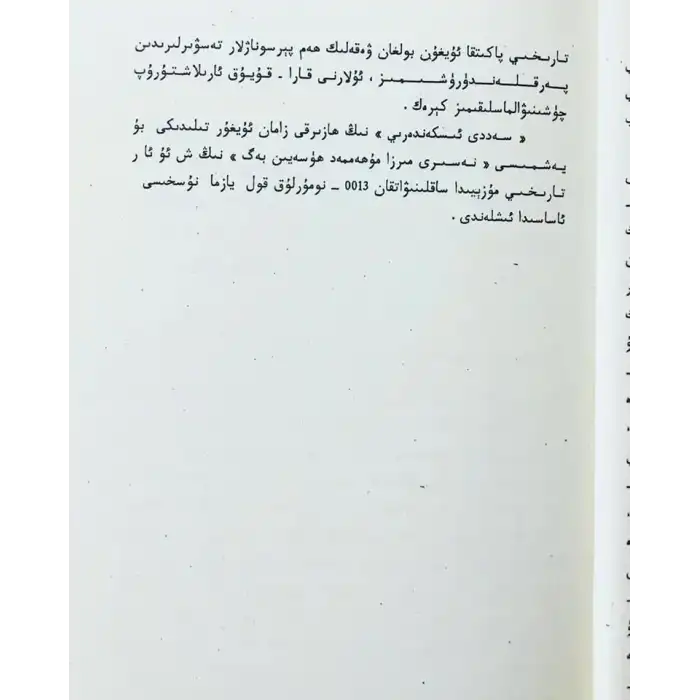 تارىخىي پاكىتقا ئۇيغۇن بولغان ۋەقەلىك ھەم پېرسوناژلار تەسۋىرلىرىدىن
پەرقلەندۈرۈشىمىز ، ئۇلارنى قارا ـ قۇيۇق ئارىلاشتۇرۇپ
چۈشىنىۋالماسلىقىمىز كېرەك .
« سەددى ئىسكەندەرىي » نىڭ ھازىرقى زامان ئۇيغۇر تىلىدىكى بۇ
يەشمىسى « نەسىرى مىرزا مۇھەممەد ھۈسەيىن بەگ » نىڭ ش ئۇ ئا ر
تارىخىي مۇزېيىدا ساقلىنىۋاتقان 0013 ـ نومۇرلۇق قول يازما نۇسخىسى
ئاساسىدا ئىشلەندى .